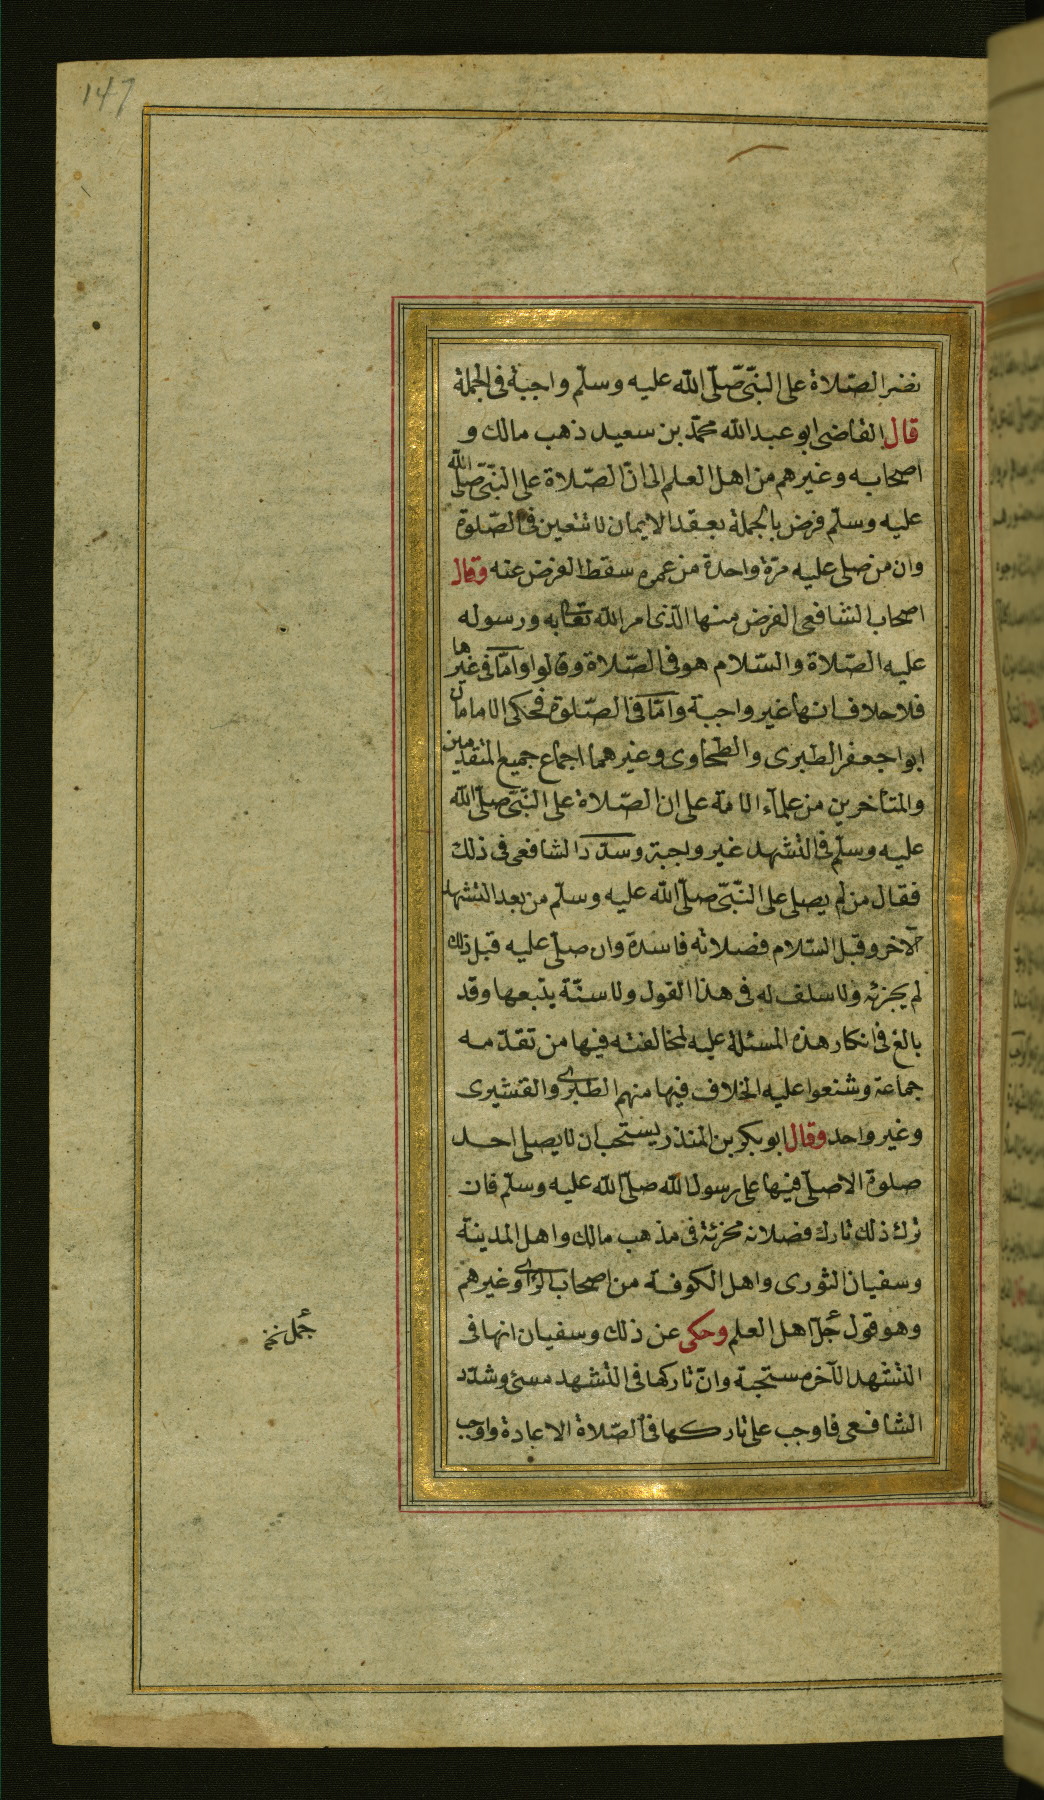 147
نضر الصّلاة على النّبّى صّلّى الله عليه وسلّم واجبة فى الجملة
قال القاضى ابو عبد الله محمّد بن سعيد ذهب مالك و
اصحابه وغيرهم من اهل العلم الى انّ الصّلاة على النّبّى صّلّى الله
عليه وسلّم فرض بالجملة بعقد الايمان لا تتعين فى الصّلوة
وان من صلى عليه مرّة واحدة من عمره سقط الفرض عنه وقال
اصحاب الشافعى الفرض منها الّذى امر الله تعا به ورسوله
عليه الصّلاة والسّلام هو فى الصّلاة وقالوا وامّا فى غيرها
فلا خلاف انها غير واجبة وامّا فى الصّلوة فحكى الامامان
ابوا جعفر الطبرى والطحاوى وغيرهما اجماع جميع المتقدمين
والمتأخرين من علمآء الامّة على ان الصّلاة على النّبّى صلّى الله
عليه وسلّم فى التشهد غير وجبة وسدّد الشافعى فى ذلك
فقال من لم يصلى على النّبّى صلّى الله عليه وسلّم من بعد التشهد
الآخر وقبل السّلام فصلاته فاسدة وان صلّى عليه قبل ذلك
لم يجزئه ولا سلف له فى هذا القول ولا سنّة يتبعها وقد
بالغ فى انكار هذه المسئلة عليه لمخالفته فيها من تقدّمه
جماعة وشنعوا عليه الخلاف فيها منهم الطبرى والقشيرى
وغير واحد وقال ابو بكر بن المنذر يستحب ان لا يصلى احد
صلوة الا صلّى فيها على رسول الله صلّى الله عليه وسلّم فان
ترك ذلك تارك فصلاته مجزئة فى مذهب مالك واهل المدينة
وسفيان الثورى واهل الكوفة من اصحاب الرّاى وغيرهم
وهو قول جلّ اهل العلم وحكى عن ذلك وسفيان انها فى
التشهد الآخر مستحبة وانّ تاركها فى التشهد مسئ وشدّد
الشافعى فاوجب على تاركها فى الصّلاة الاعادة واوجب
جمل نخ